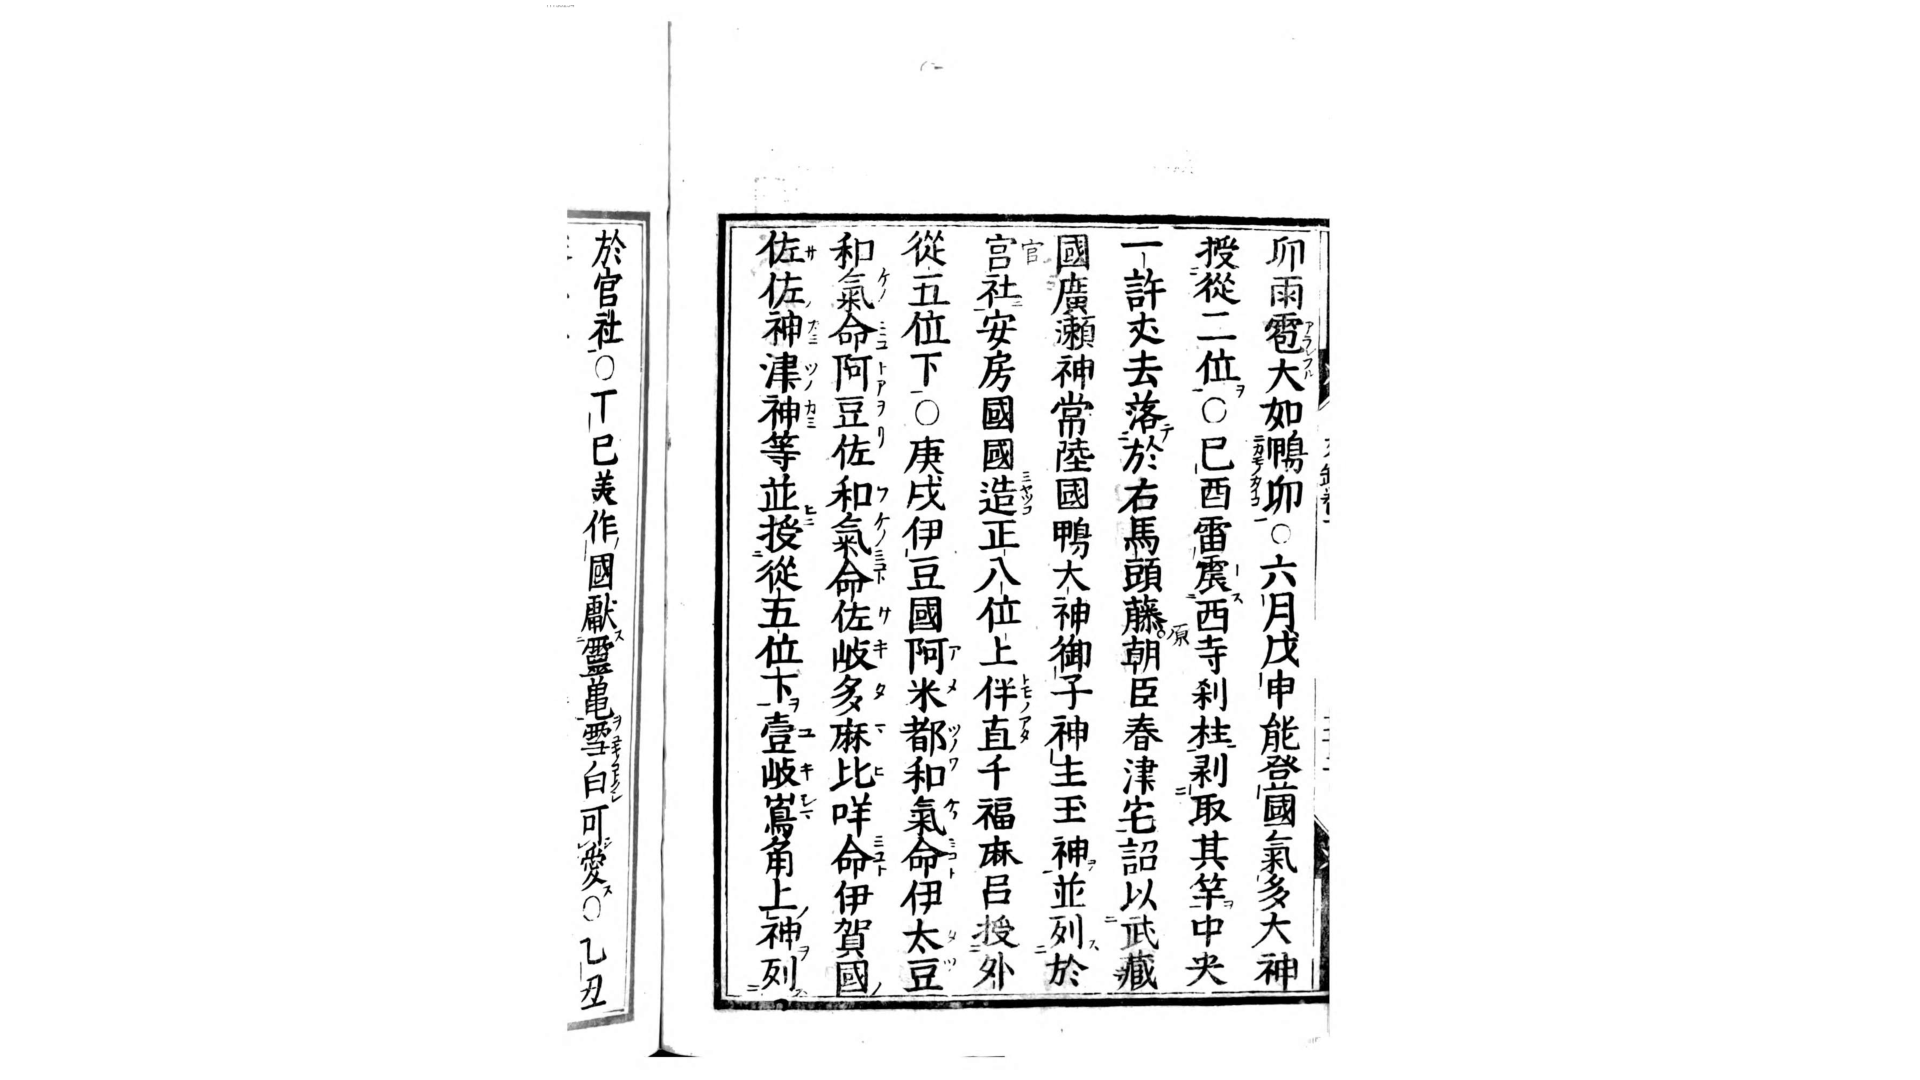 卯雨雹大如鴨卵○六月戊申能登國氣多大神
授從二位○巳酉雷震西寺刹柱剥取其竿中央
一許丈去落於右馬頭藤朝臣春津宅詔以武藏
國廣瀬神常陸國鴨大神御子神主玉神並列於
宮社安房國國造正八位上伴直千福麻呂授外
從五位下○庚戌伊豆國阿米都和氣命伊太豆
和氣命阿豆佐和氣命佐岐多麻比咩命伊賀國
佐佐神津神等並授從五位下壹岐嶌角上神列
於官社○丁巳美作國獻靈亀雪白可愛○乙丑